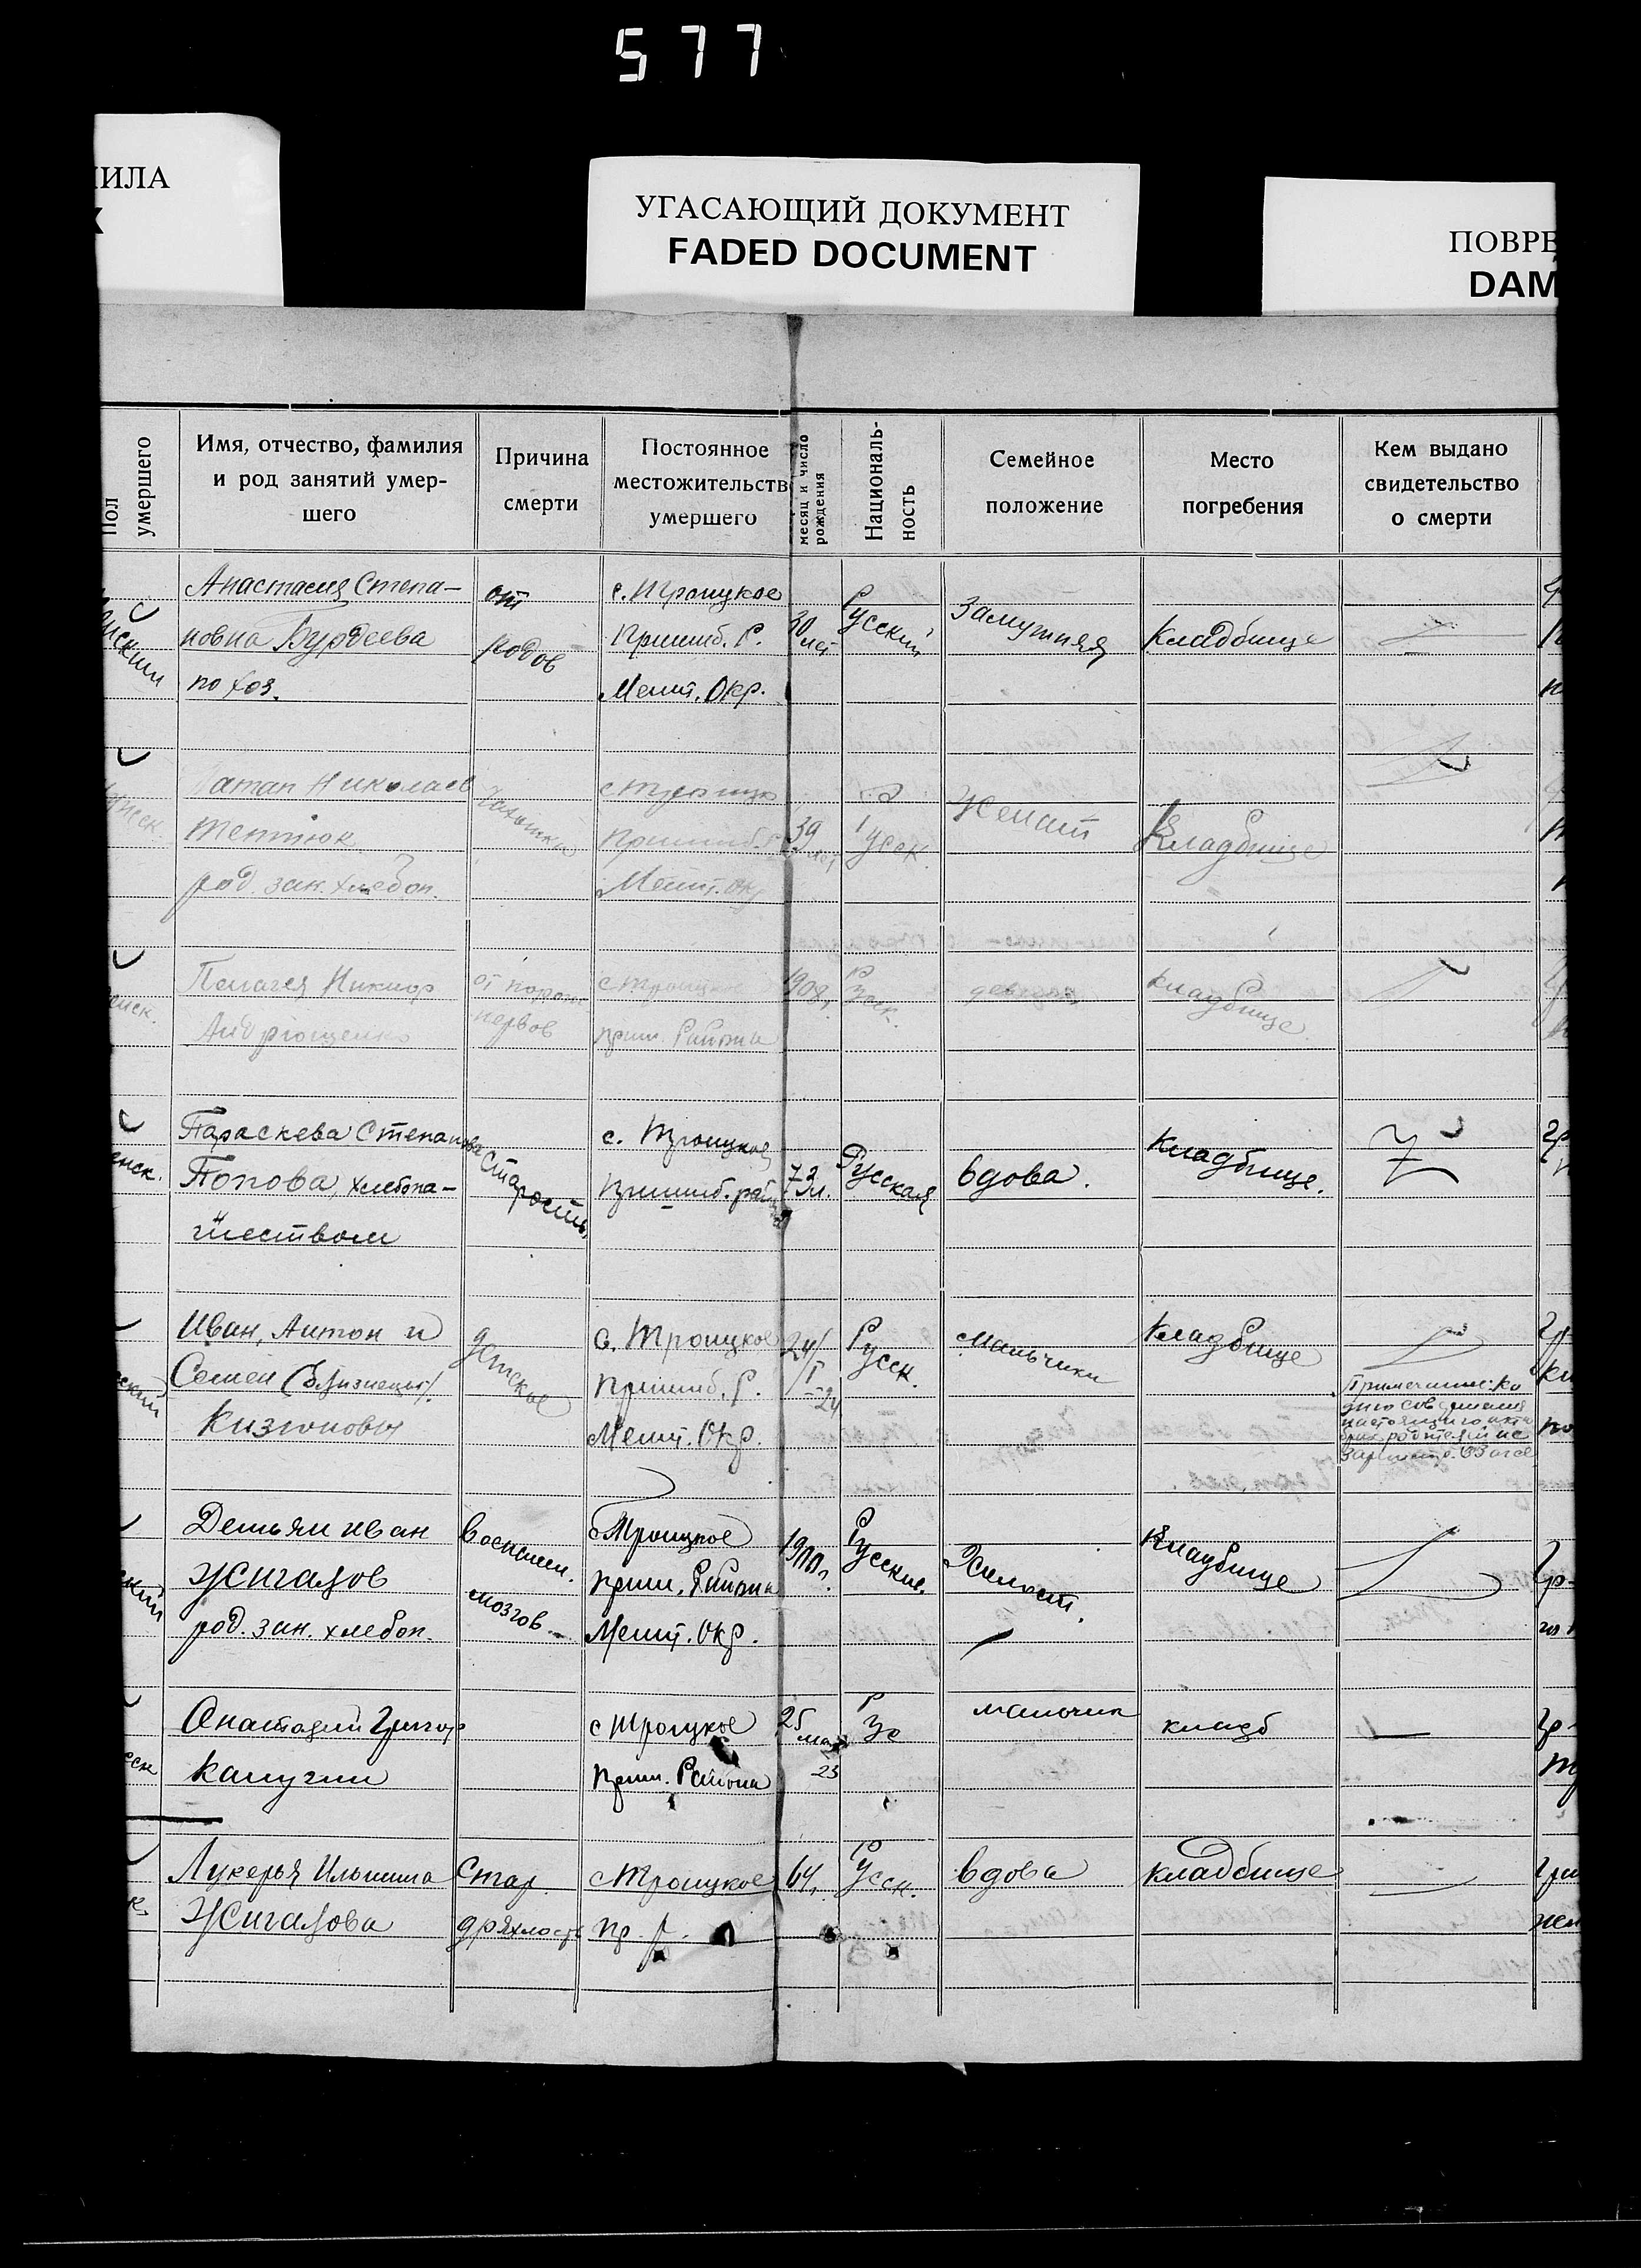 577
ИЛА
УГАСАЮЩИЙ ДОКУМЕНТ
FADED DOCUMENT
ПОВРЕ
DAM
Пол умершего
Имя, отчество, фамилия
и род занятий умер-
шего
Причина
смерти
Постоянное
местожительств
умершего
месяц и число
рождения
Националь-
ность
Семейное
положение
Место
погребения
Кем выдано
свидетельство
о смерти
Анастасия Степа-
новна Бурдеева
по хоз.
от
родов
с. Троицкое
Пришиб. Р.
Мелит. Окр.
30
лет
Русский
Замужняя
Кладбище
Николаев
Тептюк
род. зан. хлебоп.
Чахотка
с Троицко
Пришиб. Р
Мелит. Окр
39
лет
Русск.
Женат
Кладбище
Пелагея Никиф
Андрющенко
от
нервов
с Троицкое
приш. Района
1908г.
кладбище
Параскева Степановна
Попова, хлебопа-
шеством
Старость
с. Троицкое
Пришиб. район
73л.
Русская
вдова.
Кладбище.
Иван, Антон и
Семен (близнецы).
Кизюновы
детское
с. Троицкое
Пришиб. Р.
Мелит. Окр.
24/I-24
Русск.
мальчики
Кладбище
Демьян Иван
Жигалов
род. зан. хлебоп.
воспален.
мозгов.
с Троицкое
приш. Района
Мелит. Окр.
1900г.
Русские.
Холост.
Кладбище
Григор
Калугин
с Троицкое
Приш. Района
25
мая
23
мальчик
кладб
Лукерья Ильинишна
Жигалова
Стар.
дряхлость
с Троицкое
пр. р.
64г.
Русск.
вдова
кладбище